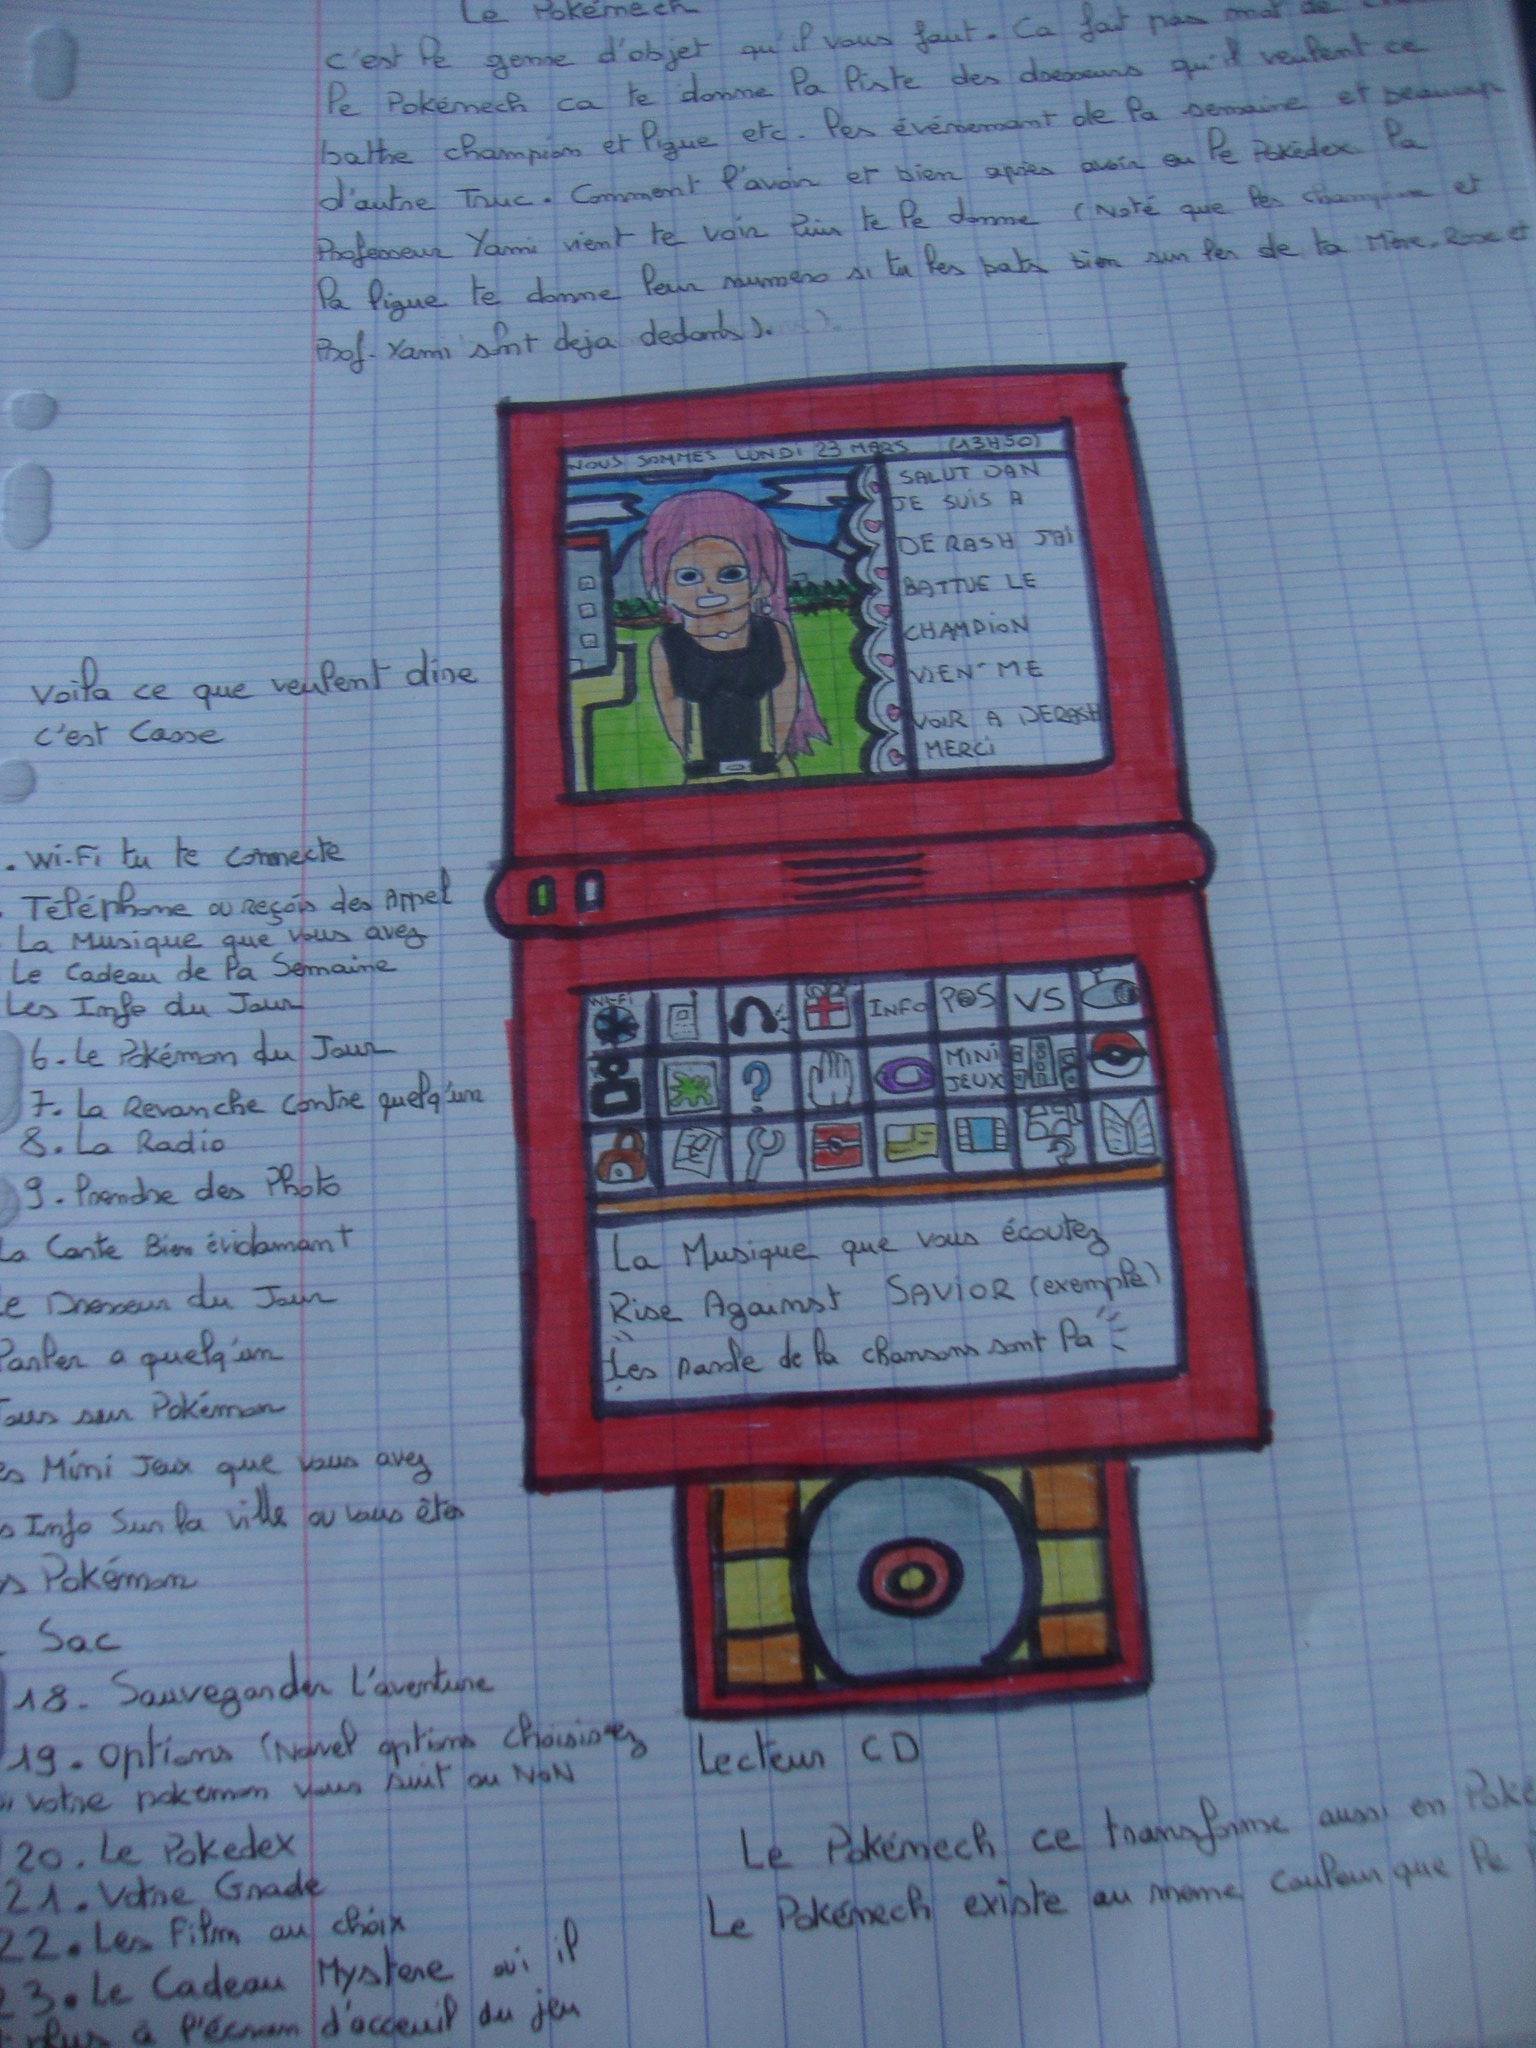 Le Pokémech
c'est le genre d'objet qu'il vous faut. Ca fait pas mat de
le Pokémech ca te donne la liste des dresseurs qu'il veulent ce
battre champion et ligue etc. les événemant de la semaine et beaucoup
d'autre Truc. Comment l'avoir et bien après avoir eu le Pokédex. la
Professeur Yami vient te voir puis te le donne (Noté que les champion et
la ligue te donne leur numero si tu les bats bien sur les de ta Mère, Rose et
Prof. Yami sont deja dedans).
NOUS SOMMES LUNDI 23 MARS (13H50)
SALUT DAN
JE SUIS A
DERASH JAI
BATTUE LE
CHAMPION
VIEN ME
VOIR A DERASH
MERCI
Voila ce que veulent dire
c'est Casse
. Wi-Fi tu te connecte
. Téléphone ou Reçois des Appel
La Musique que vous avez
Le Cadeau de la Semaine
Les Info du Jour
6. Le Pokémon du Jour
7. La Revanche contre quelq'un
8. La Radio
9. Prendre des Photo
La Carte Bien évidamant
Le Dresseur du Jour
Parler a quelq'un
Tous sur Pokémon
es Mini Jeux que vous avez
s Info Sur la ville ou vous êtes
s Pokémon
. Sac
18. Sauvegarder l'aventure
19. Options (Novel options choisissez
votre pokemon vous suit ou NON
20. Le Pokedex
21. Votre Grade
22. Les Film au choix
23. Le Cadeau Mystere oui il
plus a l'écram d'acceuil du jeu
WI-FI
INFO
P@S
VS
MINI
JEUX
?
La Musique que vous écoutez
Rise Against SAVIOR (exemple)
Les parole de la chansons sont la
Lecteur CD
Le Pokémech ce transforme aussi en Poké
Le Pokémech existe au meme couleur que le